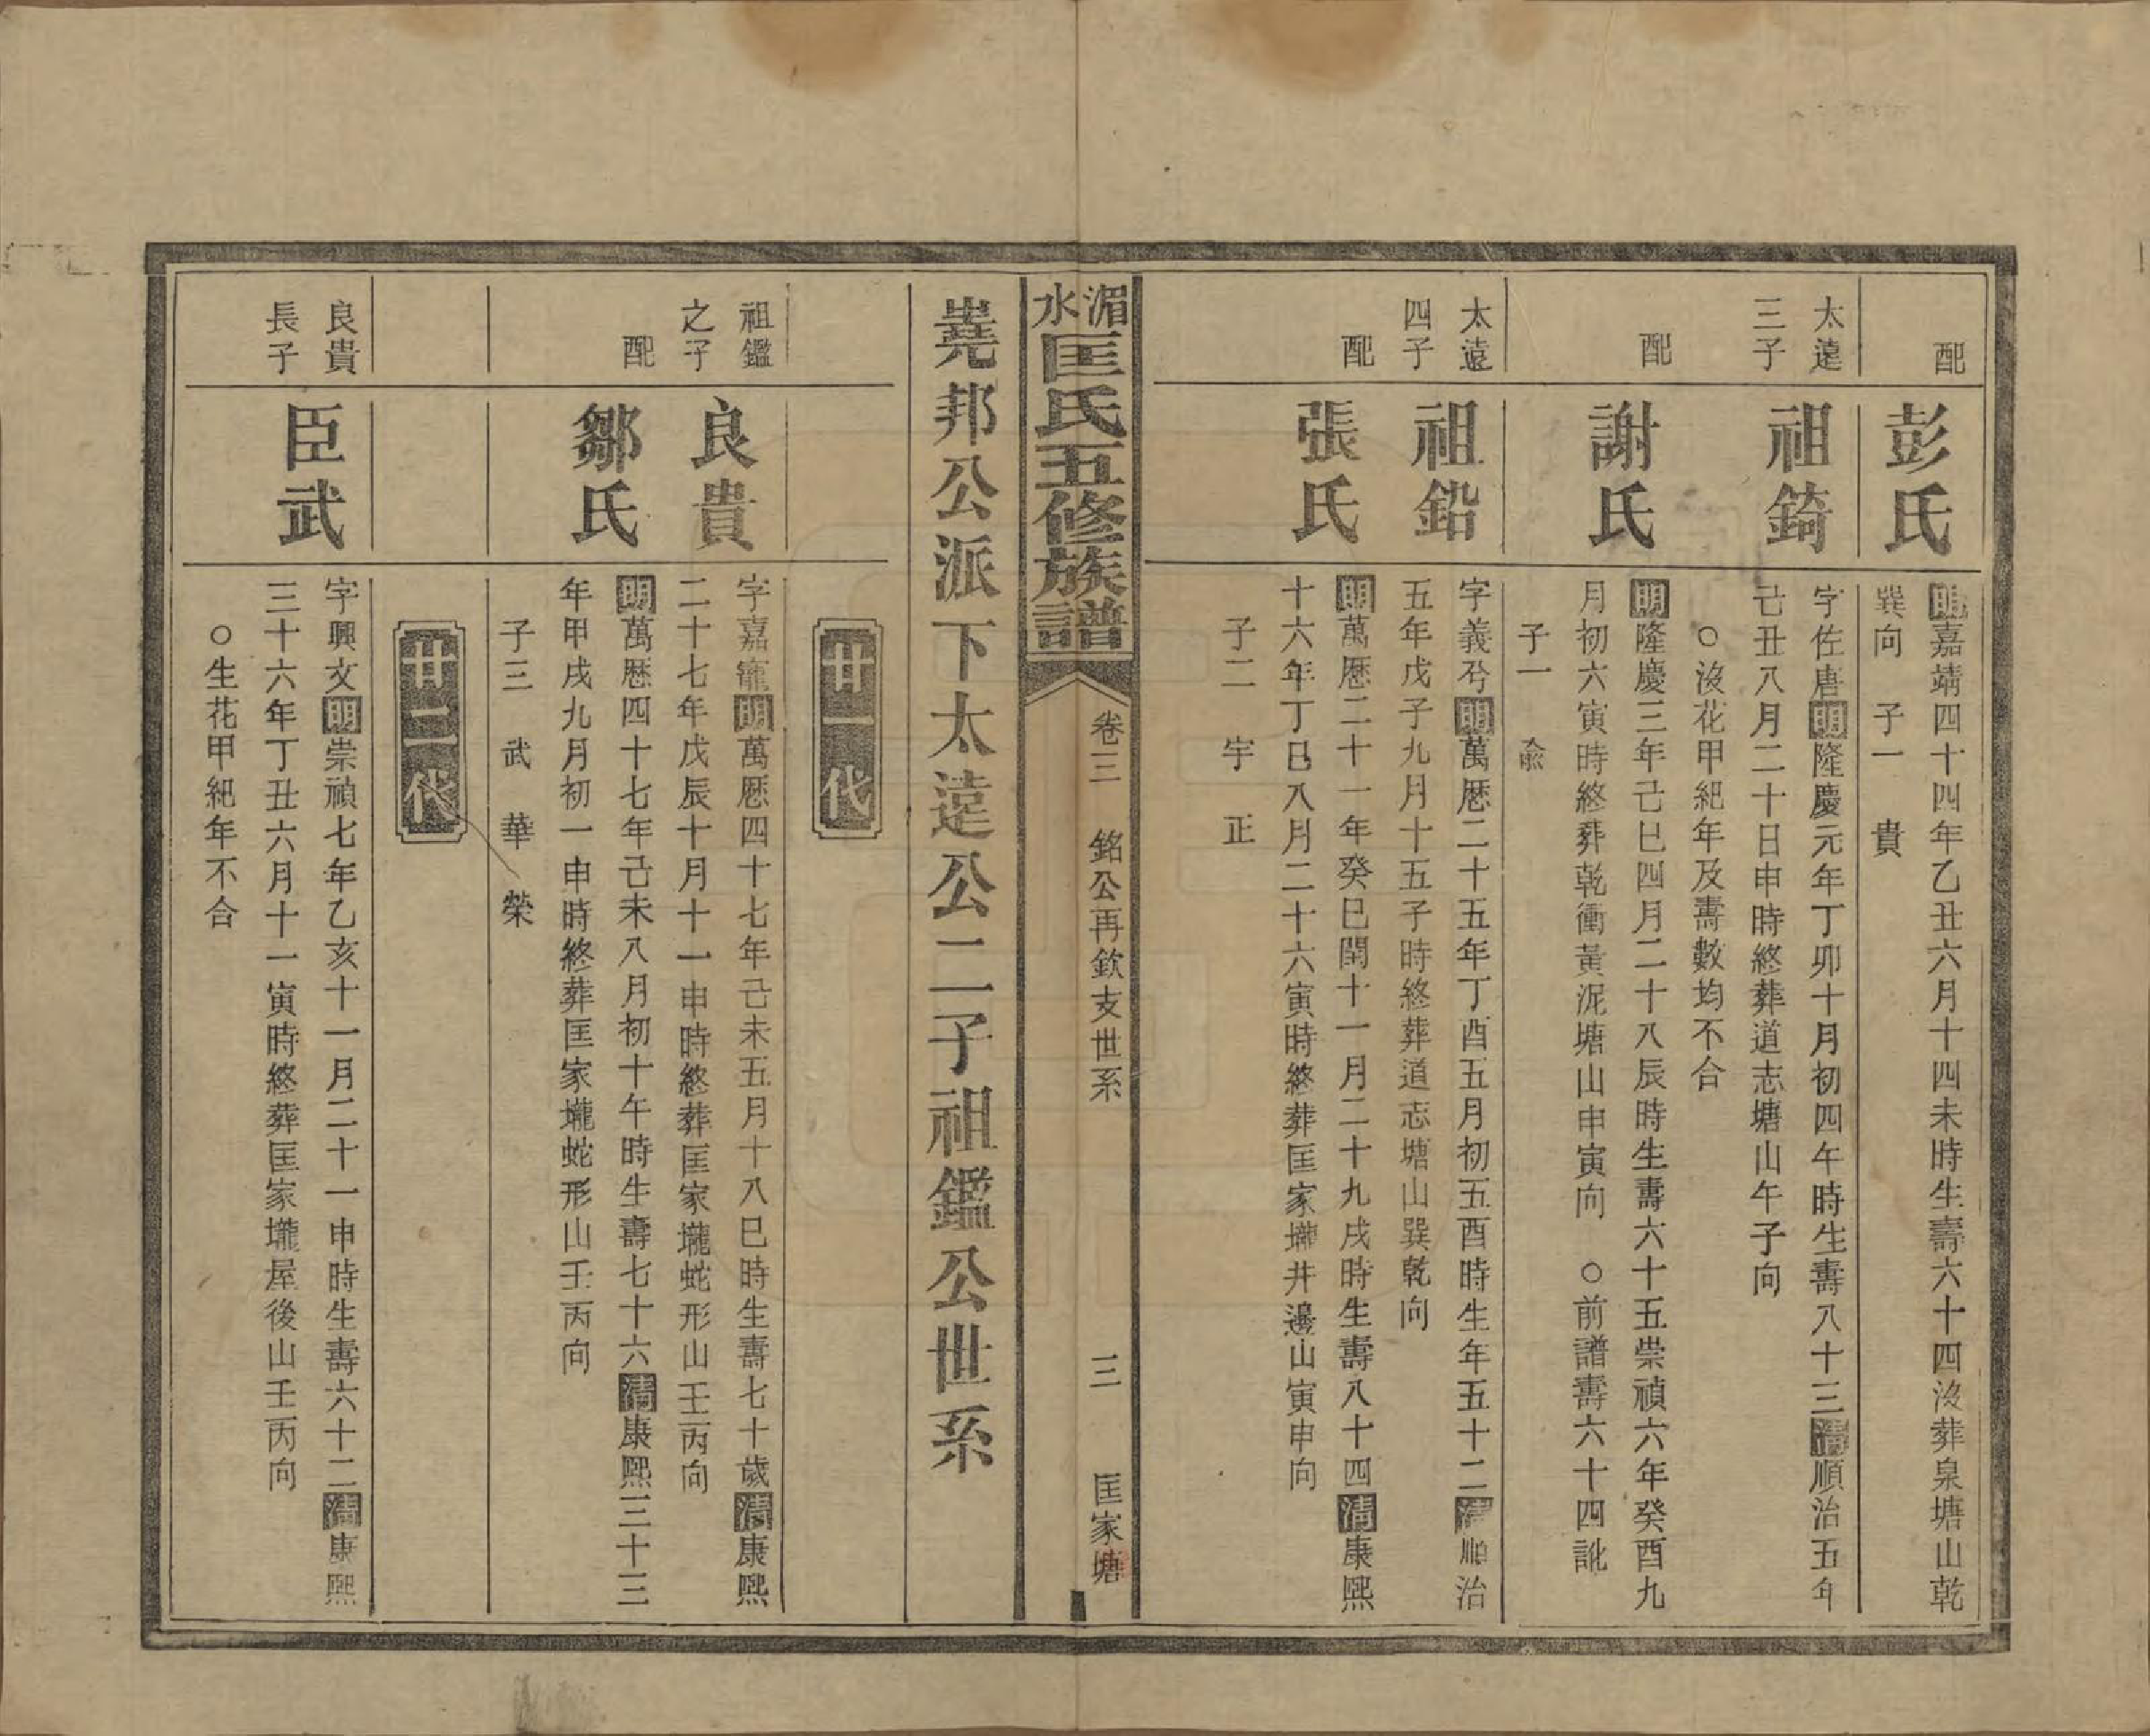 配
彭氏
明嘉靖四十四年乙丑六月十四未時生壽六十四沒葬泉塘山乾
巽向　子一　貴
太遠
三子
祖錡
字佐唐明隆慶元年丁卯十月初四午時生壽八十三清順治五年
己丑八月二十日申時終葬道志塘山午子向
○沒花甲紀年及壽數均不合
配
謝氏
明隆慶三年己巳四月二十八辰時生壽六十五崇禎六年癸酉九
月初六寅時終葬乾衝黃泥塘山申寅向　○前譜壽六十四訛
子一　歈
太遠
四子
祖鉛
字義兮明萬厯二十五年丁酉五月初五酉時生年五十二清順治
五年戊子九月十五子時終葬道志塘山巽乾向
配
張氏
明萬厯二十一年癸巳閏十一月二十九戌時生壽八十四清康熙
十六年丁巳八月二十六寅時終葬匡家壠井邊山寅申向
子二　宇　正
湄水匡氏五修族譜
卷三　銘公再欽支世系
三
匡家塘
堯邦公派下太遠公二子祖鑑公世系
廿一代
祖鑑
之子
良貴
字嘉寵明萬厯四十七年己未五月十八巳時生壽七十歲清康熙
二十七年戊辰十月十一申時終葬匡家壠蛇形山壬丙向
配
鄒氏
明萬厯四十七年己未八月初十午時生壽七十六清康熙三十三
年甲戌九月初一申時終葬匡家壠蛇形山壬丙向
子三　武　華　榮
廿二代
良貴
長子
臣武
字興文明崇禎七年乙亥十一月二十一申時生壽六十二清康熙
三十六年丁丑六月十一寅時終葬匡家壠屋後山壬丙向
○生花甲紀年不合